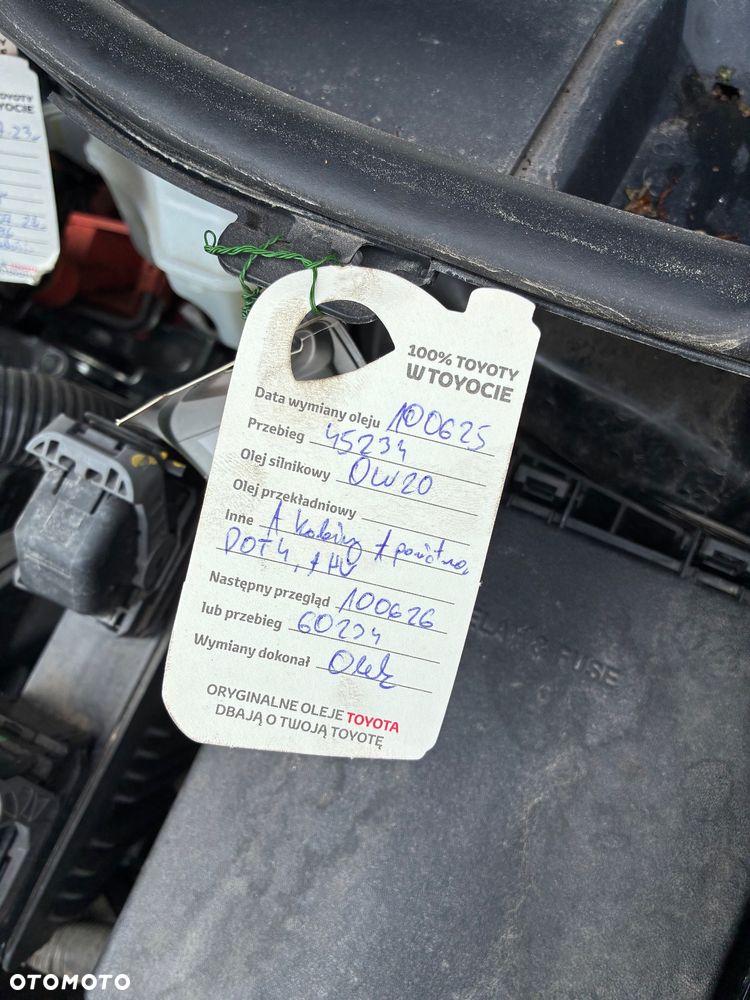 100% TOYOTY
W TOYOCIE
Data wymiany oleju 100625
Przebieg 45234
Olej silnikowy 0W20
Olej przekładniowy
Inne
DOT4,
Następny przegląd 100626
lub przebieg 60234
Wymiany dokonał Olek
ORYGINALNE OLEJE TOYOTA
DBAJĄ O TWOJĄ TOYOTĘ
TOYOTY
TOYOCIE
RELAY & FUSE
OTOMOTO